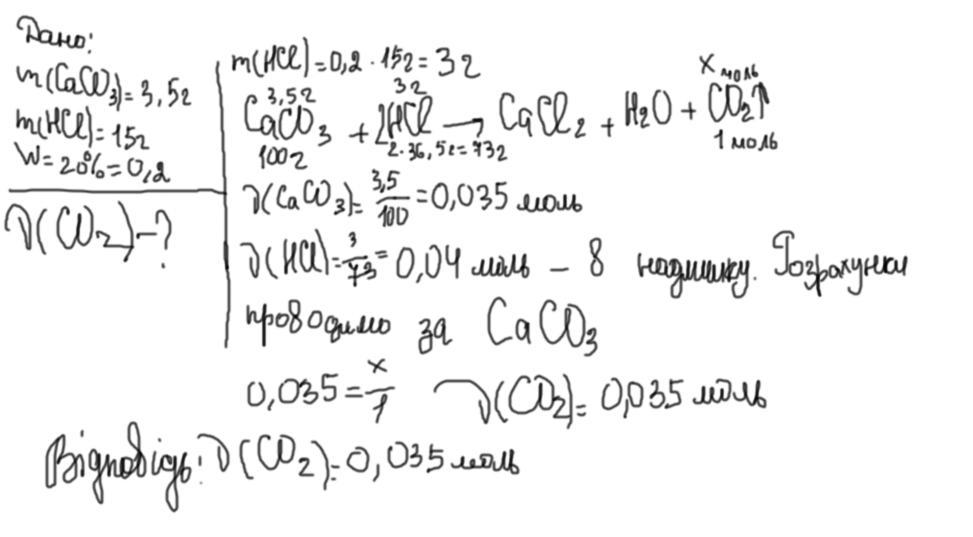 Дано:
m(CaCO3)=3,5г
m(HCl)=15г
W=20%=0,2
ν(CO2)-?
m(HCl)=0,2·15г=3г
3,5г 3г x моль
CaCO3 + 2HCl → CaCl2 + H2O + CO2↑
100г 2·36,5г=73г 1 моль
ν(CaCO3)=3,5/100=0,035 моль
ν(HCl)=3/73=0,04 моль – в надлишку. Розрахунки
проводимо за CaCO3
0,035=x/1 ν(CO2)=0,035 моль
Відповідь: ν(CO2)=0,035 моль